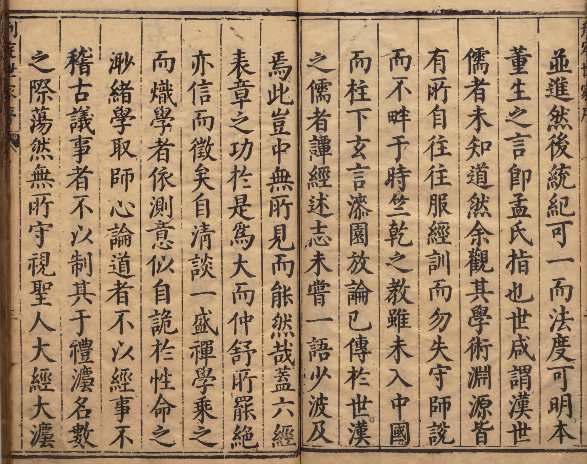 並進然後統紀可一而法度可明本
董生之言即孟氏指也世咸謂漢世
儒者未知道然余觀其學術淵源皆
有所自往往服經訓而勿失守師說
而不畔于時竺乾之教雖未入中國
而柱下玄言漆園放論已傳於世漢
之儒者譚經述志未嘗一語少波及
焉此豈中無所見而能然哉蓋六經
表章之功於是爲大而仲舒所罷絕
亦信而徵矣自清談一盛禪學乘之
而熾學者依測意似自詭於性命之
渺緒學取師心論道者不以經事不
稽古議事者不以制其于禮灋名數
之際蕩然無所守視聖人大經大灋